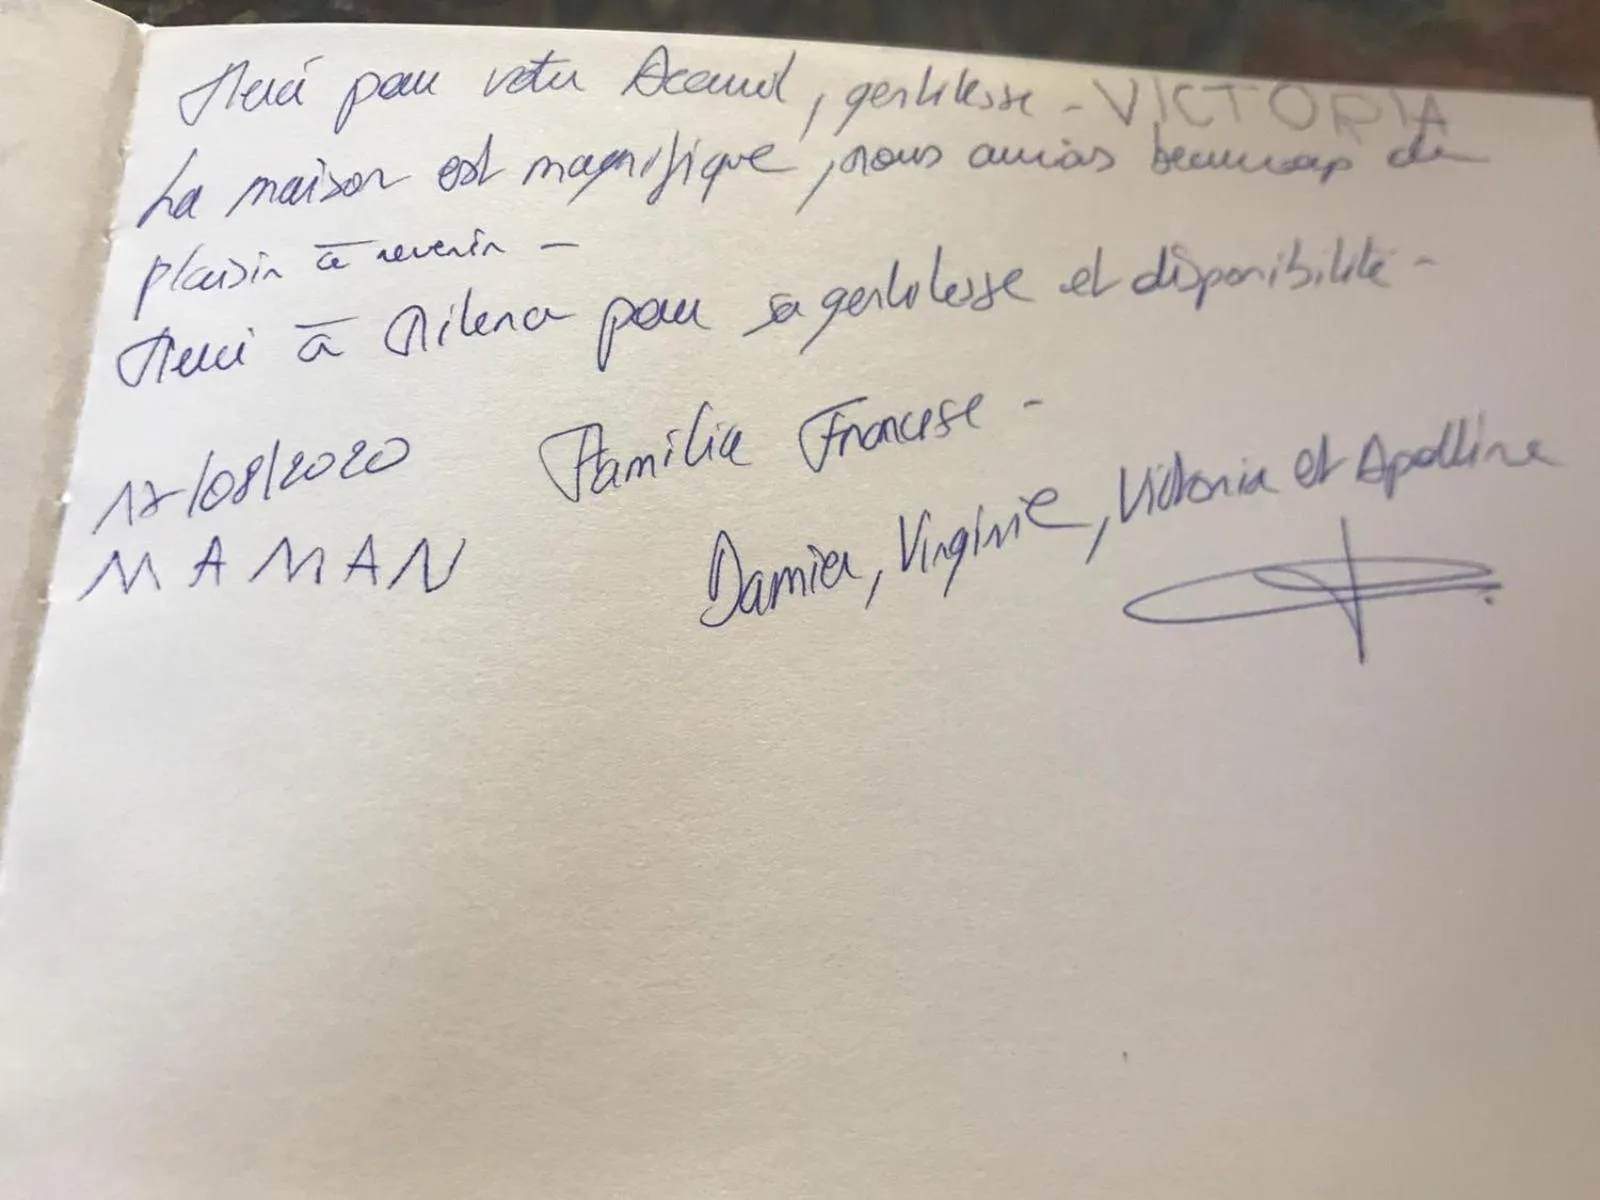 Merci pour votre Accueil, gentillesse - VICTORIA
La maison est magnifique, nous aurions beaucoup de
plaisir à revenir -
Merci à Milena pour sa gentillesse et disponibilité -
Familia Francese -
17/08/2020
Damien, Virginie, Victoria et Apolline
MAMAN